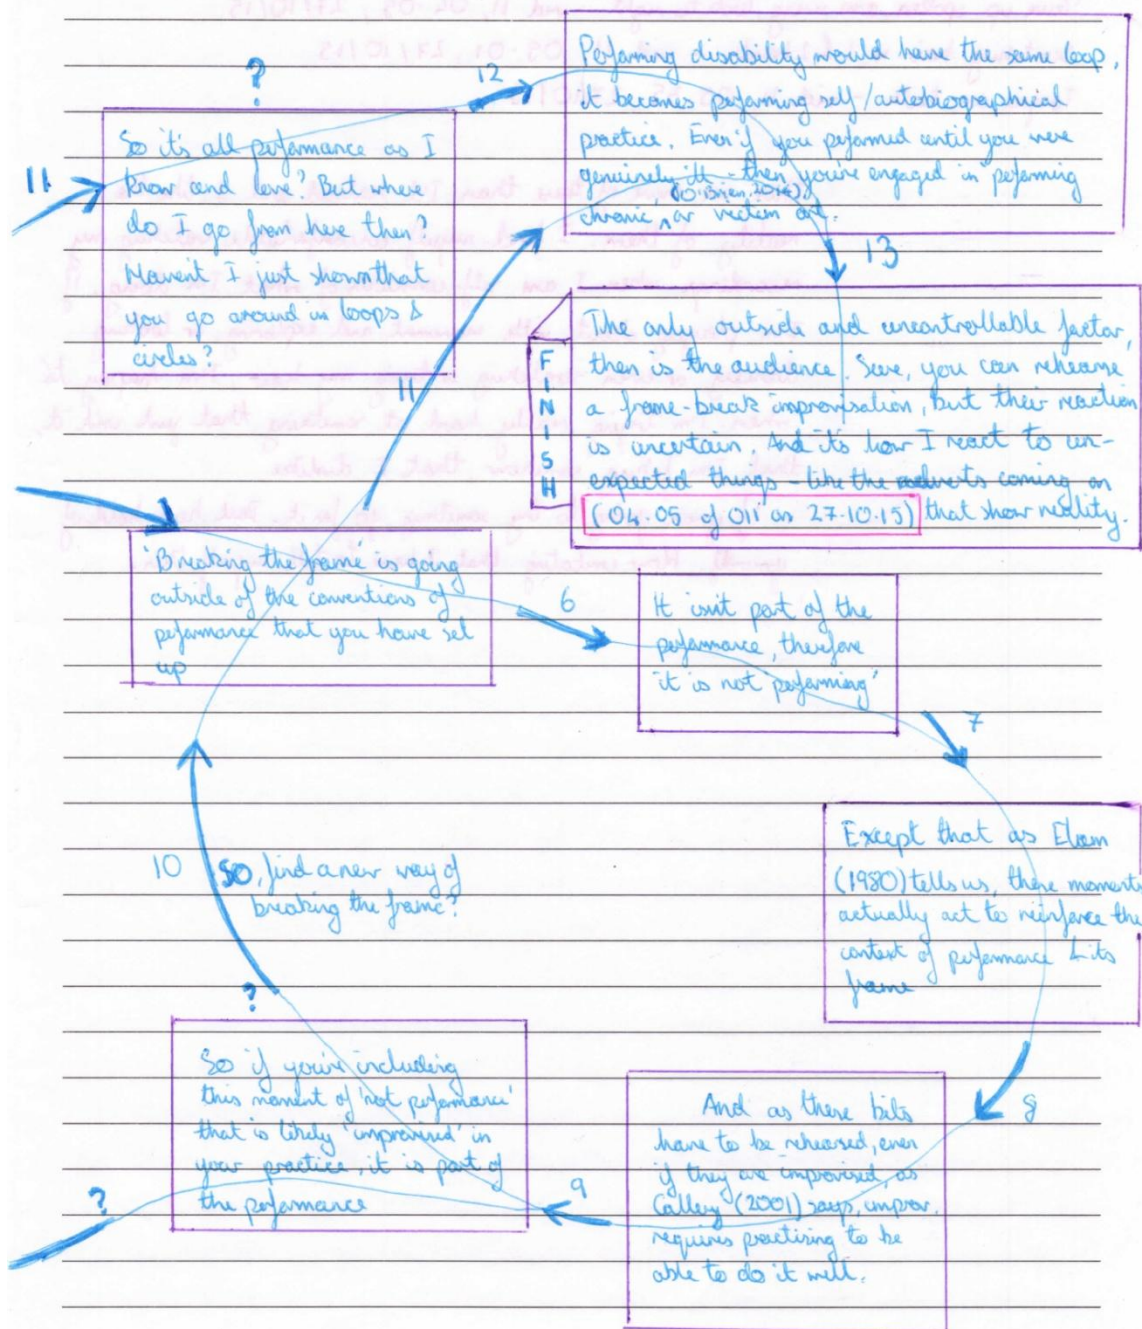 ?
11
So it's all performance as I
know and love? But where
do I go from here then?
Haven't I just shown that
you go around in loops &
circles?
12
Peforming disability would have the same loop,
it becomes peforming self/autobiographical
practice. Even if you peformed until you were
genuinely ill - then you're engaged in peforming
(O'Brien, 2016)
chronic, or victim art.
13
FINISH
The only outside and uncontrollable factor,
then is the audience. Sure, you can rehearse
a frame-break improvisation, but their reaction
is uncertain. And it's how I react to un-
expected things - like the adverts coming on
(04.05 of 011 on 27.10.15) that show reality.
11
'Breaking the frame' is going
outside of the conventions of
peformance that you have set
up
6
It isn't part of the
peformance, therefore
it is 'not peforming'
7
Except that as Elam
(1980) tells us, these moments
actually act to reinforce the
context of peformance & its
frame
8
And as these bits
have to be rehearsed, even
if they are improvised, as
Callery (2001) says, improv.
requires practising to be
able to do it well.
9
?
So if you're including
this moment of 'not peformance'
that is likely 'improvised' in
your practice, it is part of
the peformance
?
10
SO, find a new way of
breaking the frame?